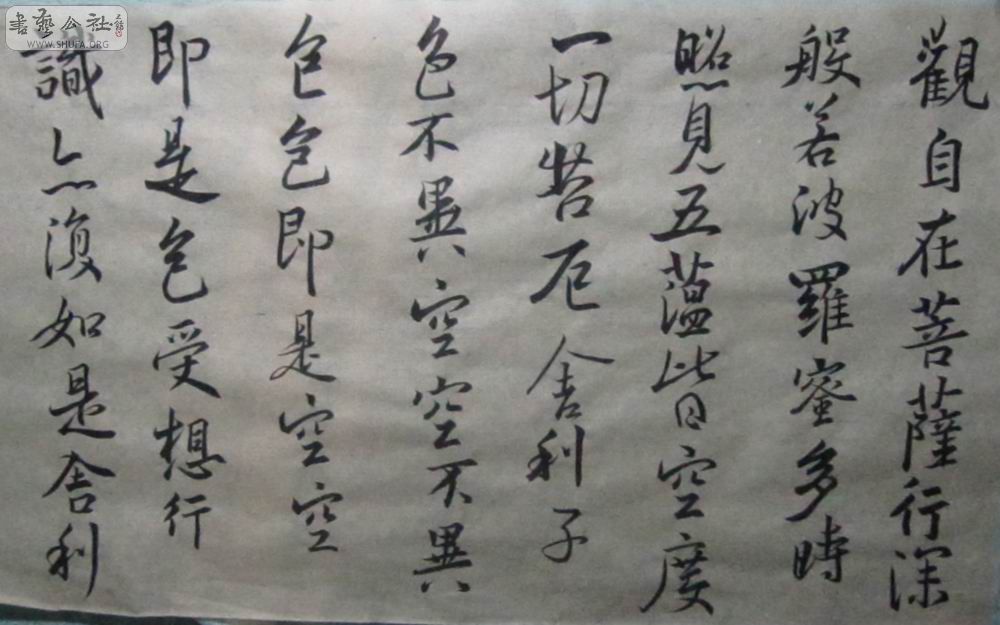 觀自在菩薩行深
般若波羅蜜多時
照見五蘊皆空度
一切苦厄舍利子
色不異空空不異
色色即是空空
即是色受想行
識亦復如是舍利
書藝公社
WWW.SHUFA.ORG